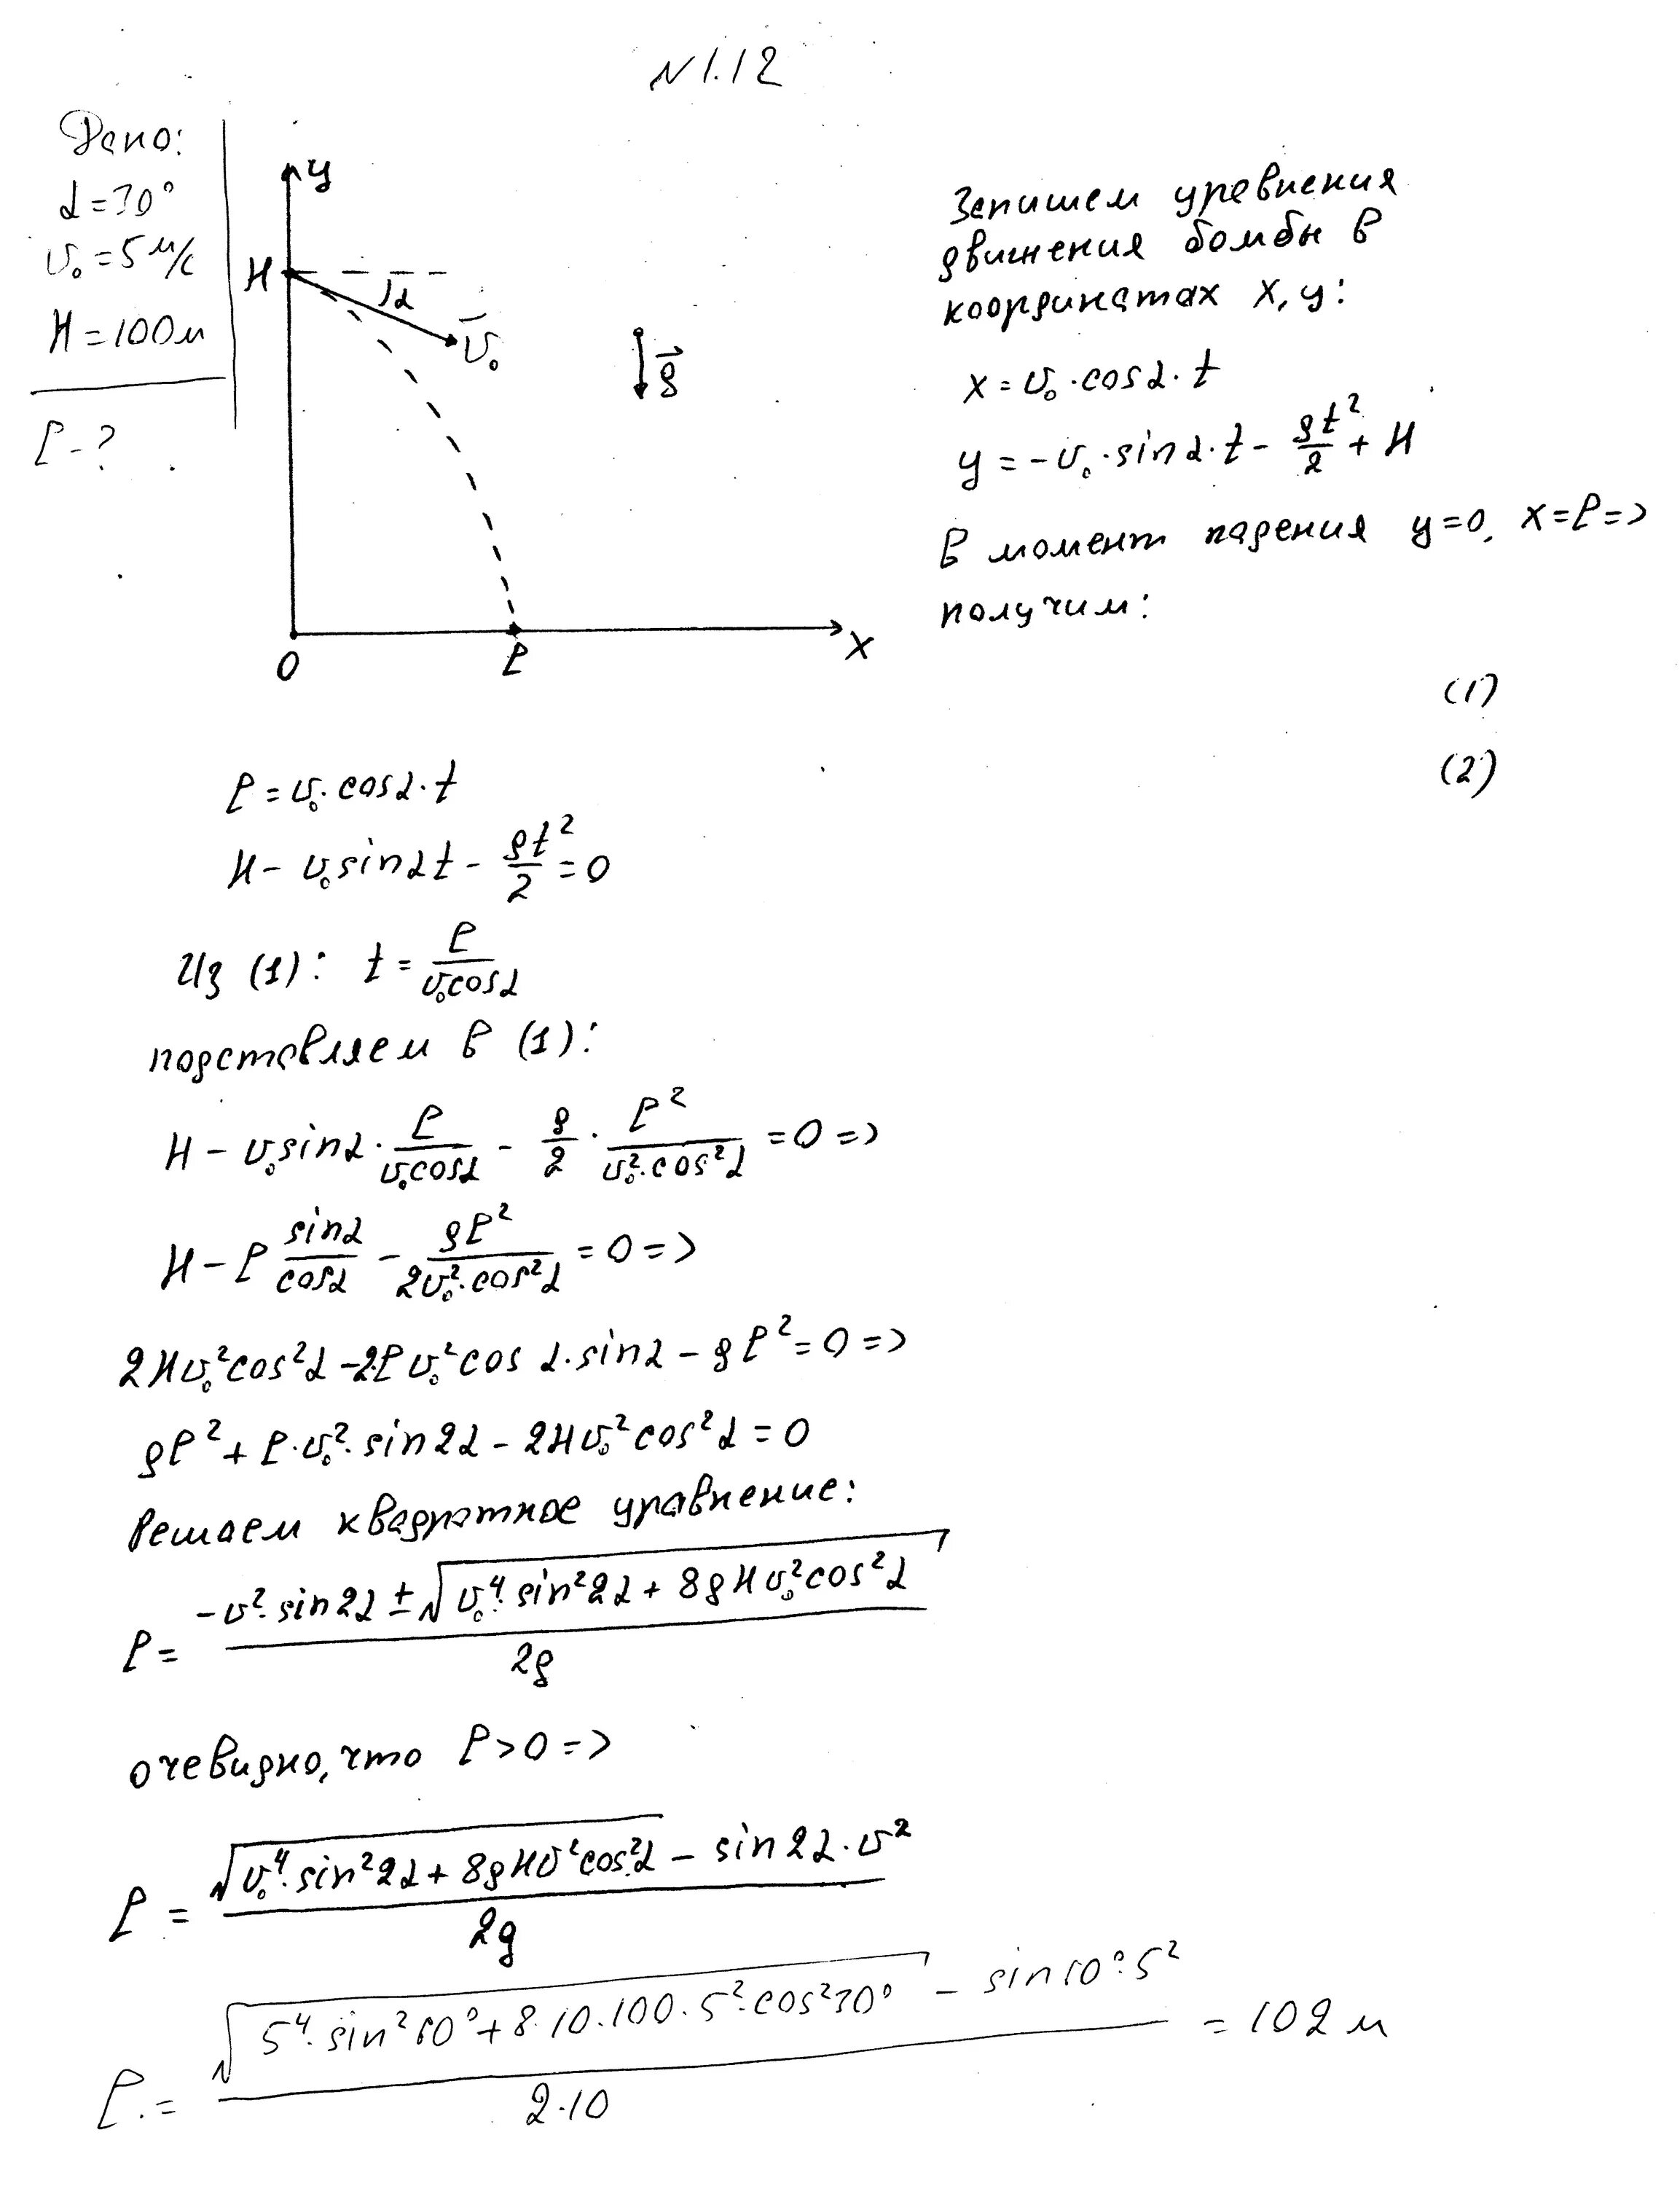 N1.12
Дано:
α = 30°
υ₀ = 5 м/с
H = 100м
ℓ - ?
y
H
α
υ̅₀
g⃗
0
ℓ
x
Запишем уравнения
движения бомбы в
координатах x, y:
x = υ₀ · cosα · t
y = -υ₀ · sinα · t - gt²/2 + H
В момент падения y=0, x=ℓ =>
получим:
(1)
(2)
ℓ = υ₀ · cosα · t
H - υ₀sinαt - gt²/2 = 0
Из (1): t = ℓ/υ₀cosα
подставляем в (1):
H - υ₀sinα · ℓ/υ₀cosα - g/2 · ℓ²/υ₀²·cos²α = 0 =>
H - ℓ sinα/cosα - gℓ²/2υ₀²·cos²α = 0 =>
2Hυ₀²cos²α - 2ℓυ₀²cosα·sinα - gℓ² = 0 =>
gℓ² + ℓ·υ₀²·sin2α - 2Hυ₀²cos²α = 0
Решаем квадратное уравнение:
ℓ = (-υ²·sin2α ± √(υ₀⁴·sin²2α + 8gHυ₀²cos²α))/2g
очевидно, что ℓ > 0 =>
ℓ = (√(υ₀⁴·sin²2α + 8gHυ²cos²α) - sin2α·υ²)/2g
ℓ. = (√(5⁴·sin²60° + 8·10·100·5²·cos²30°) - sin60°·5²)/2·10 = 102 м